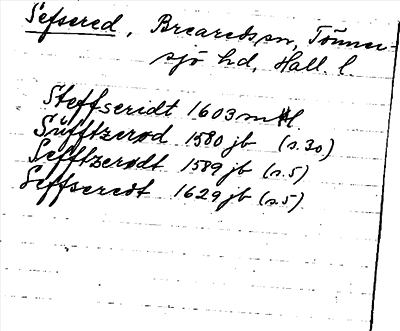 Sefsered, Breareds sn, Tönner-
sjö hd, Hall. l.
Steffseridt 1603 mtl.
Süfftzerød 1580 jb (s. 30)
Sefftzerødt 1589 jb (s. 5)
Seffseredt 1629 jb (s. 5)